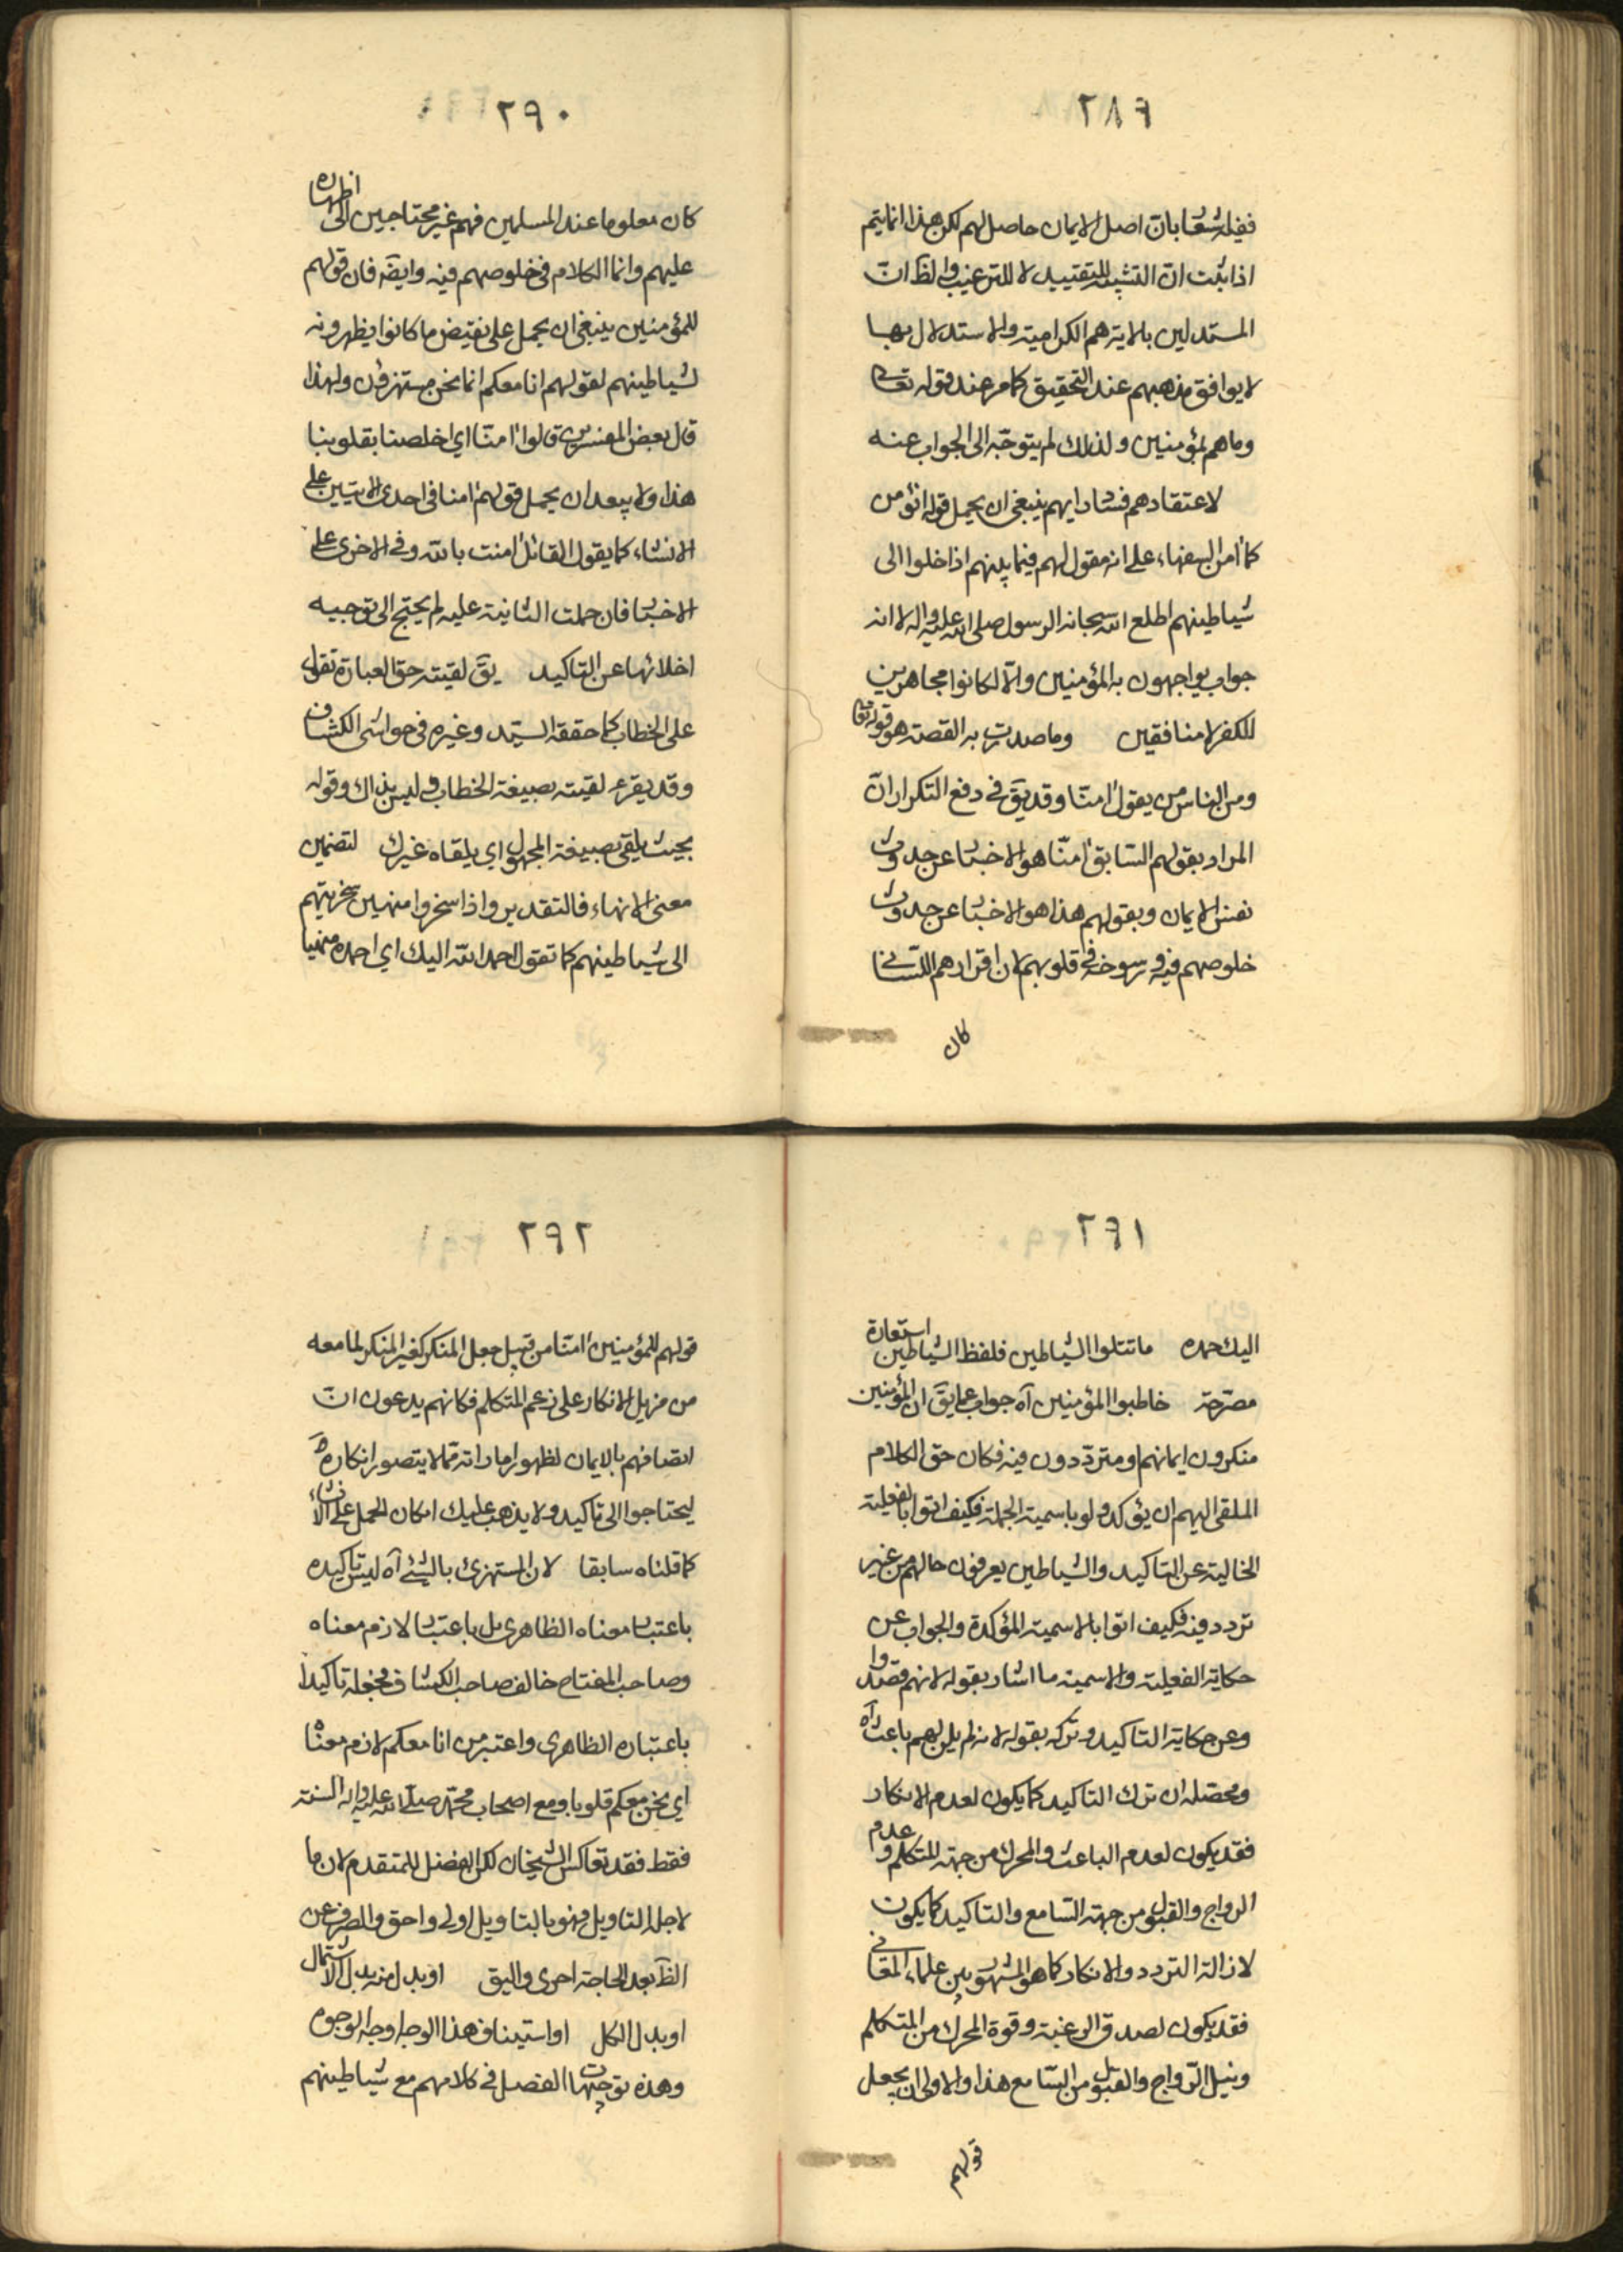 ٢٨٩
ففيه اشعار بان اصل الايمان حاصل لهم لكن هذا انما يتم
اذا ثبت ان التشبيه للتقييد لا للترغيب والظ ان
المستدلين بالاية هم الكرامية والاستدلال بها
لا يوافق مذهبهم عند التحقيق كما مر عند قوله تعالى
وما هم بمؤمنين ولذلك لم يتوجه الى الجواب عنه
لاعتقادهم فساد ايهم ينبغي ان يحمل قوله انؤمن
كما امن السفهاء على انه مقول لهم فيما بينهم اذا خلوا الى
شياطينهم اطلع الله سبحانه الرسول صلى الله عليه واله لا انه
جواب يواجهون به المؤمنين والا لكانوا مجاهرين
للكفر لا منافقين وما صدرت به القصة هو قوله تعا
ومن الناس من يقول امنا وقد يق في دفع التكرار ان
المراد بقولهم السابق امنا هو الاخبار عن حدوث
نفس الايمان وبقولهم هذا هو الاخبار عن حدوث
خلوصهم فيه ورسوخه في قلوبهم لان اقرارهم اللساني
كان
٢٩٠
كان معلوما عند المسلمين فهم غير محتاجين الى اظهاره
عليهم وانما الكلام في خلوصهم فيه وايضه فان قولهم
للمؤمنين ينبغي ان يحمل على نقيض ما كانوا يظهرونه
لشياطينهم لقولهم انا معكم انما نحن مستهزؤن ولهذا
قال بعض المفسرين قالوا امنا اي اخلصنا بقلوبنا
هذا ولا يبعد ان يحمل قولهم امنا في احدى الايتين على
الانشاء كما يقول القائل امنت بالله وفي الاخرى على
الاخبار فان حملت الثانية عليه لم يحتج الى توجيه
اخلائها عن التاكيد يق لقيته حق العبارة تقول
على الخطاب كما حققه السيد وغيره في حواشى الكشاف
وقد يقرء لقيته بصيغة الخطاب وليس بذاك وقوله
بحيث يلقى بصيغة المجهول اي يلقاه غيرك لتضمين
معنى الانهاء فالتقدير واذا سخروا منهين سخريتهم
الى شياطينهم كما تقول احمد الله اليك اي احمده منهيا
٢٩١
اليك حمده ما تتلوا الشياطين فلفظ الشياطين استعارة
مصرحة خاطبوا المؤمنين آه جواب عما يق ان المؤمنين
منكرون ايمانهم ومترددون فيه فكان حق الكلام
الملقى اليهم ان يؤكد ولو باسمية الجملة فكيف اتوا بالفعلية
الخالية عن التاكيد والشياطين يعرفون حالهم من غير
تردد فيه فكيف اتوا بالاسمية المؤكدة والجواب عن
حكاية الفعلية والاسمية ما اشار بقوله لانهم قصدوا
وعن حكاية التاكيد وتركه بقوله لانه لم يكن لهم باعث آه
ومحصله ان ترك التاكيد كما يكون لعدم الانكار
فقد يكون لعدم الباعث والمحرك من جهة المتكلم وعدم
الرواج والقبول من جهة السامع والتاكيد كما يكون
لازالة التردد والانكار كما هو المشهور بين علماء المعاني
فقد يكون لصدق الرغبة وقوة المحرك من المتكلم
ونيل الرواج والقبول من السامع هذا والاولى ان يجعل
قولهم
٢٩٢
قولهم للمؤمنين امنا من قبيل جعل المنكر كغير المنكر لما معه
من مزيل الانكار على زعم المتكلم فكانهم يدعون ان
اتصافهم بالايمان لظهور اماراته مما لا يتصور انكاره
ليحتاجوا الى تاكيد ولا يذهب عليك امكان الحمل على الانشاء
كما قلناه سابقا لان المستهزئ بالشئ آه ليس تاكيده
باعتبار معناه الظاهري بل باعتبار لازم معناه
وصاحب المفتاح خالف صاحب الكشاف فجعله تاكيدا
باعتباره الظاهري واعتبر من انا معكم لازم معناه
اي نحن معكم قلوبا ومع اصحاب محمد صلى الله عليه واله السنة
فقط فقد تعاكس الشيخان لكن الفضل للمتقدم لان ما
لاجله التاويل فهو بالتاويل اولى واحق والصرف عن
الظ بعد الحاجة احرى واليق او بدل منه بدل الاشتمال
او بدل الكل او استيناف هذا الوجه اوجه الوجوه
وهذه توجيهات الفصل في كلامهم مع شياطينهم